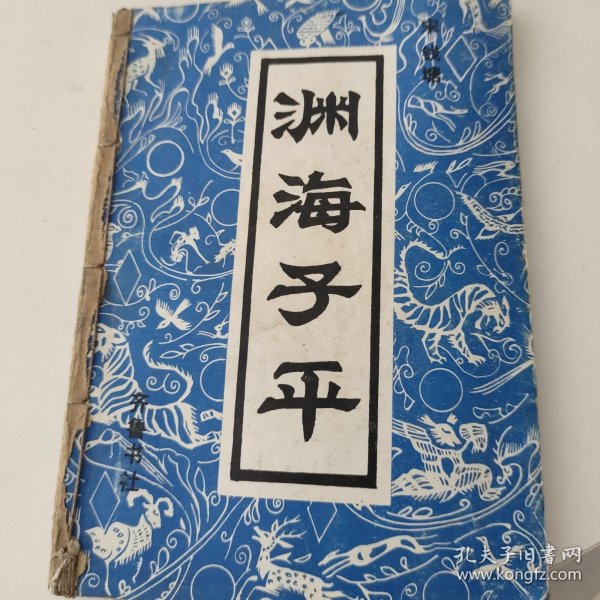 宋钱塘
渊海子平
齐鲁书社
孔夫子旧书网
www.kongfz.com